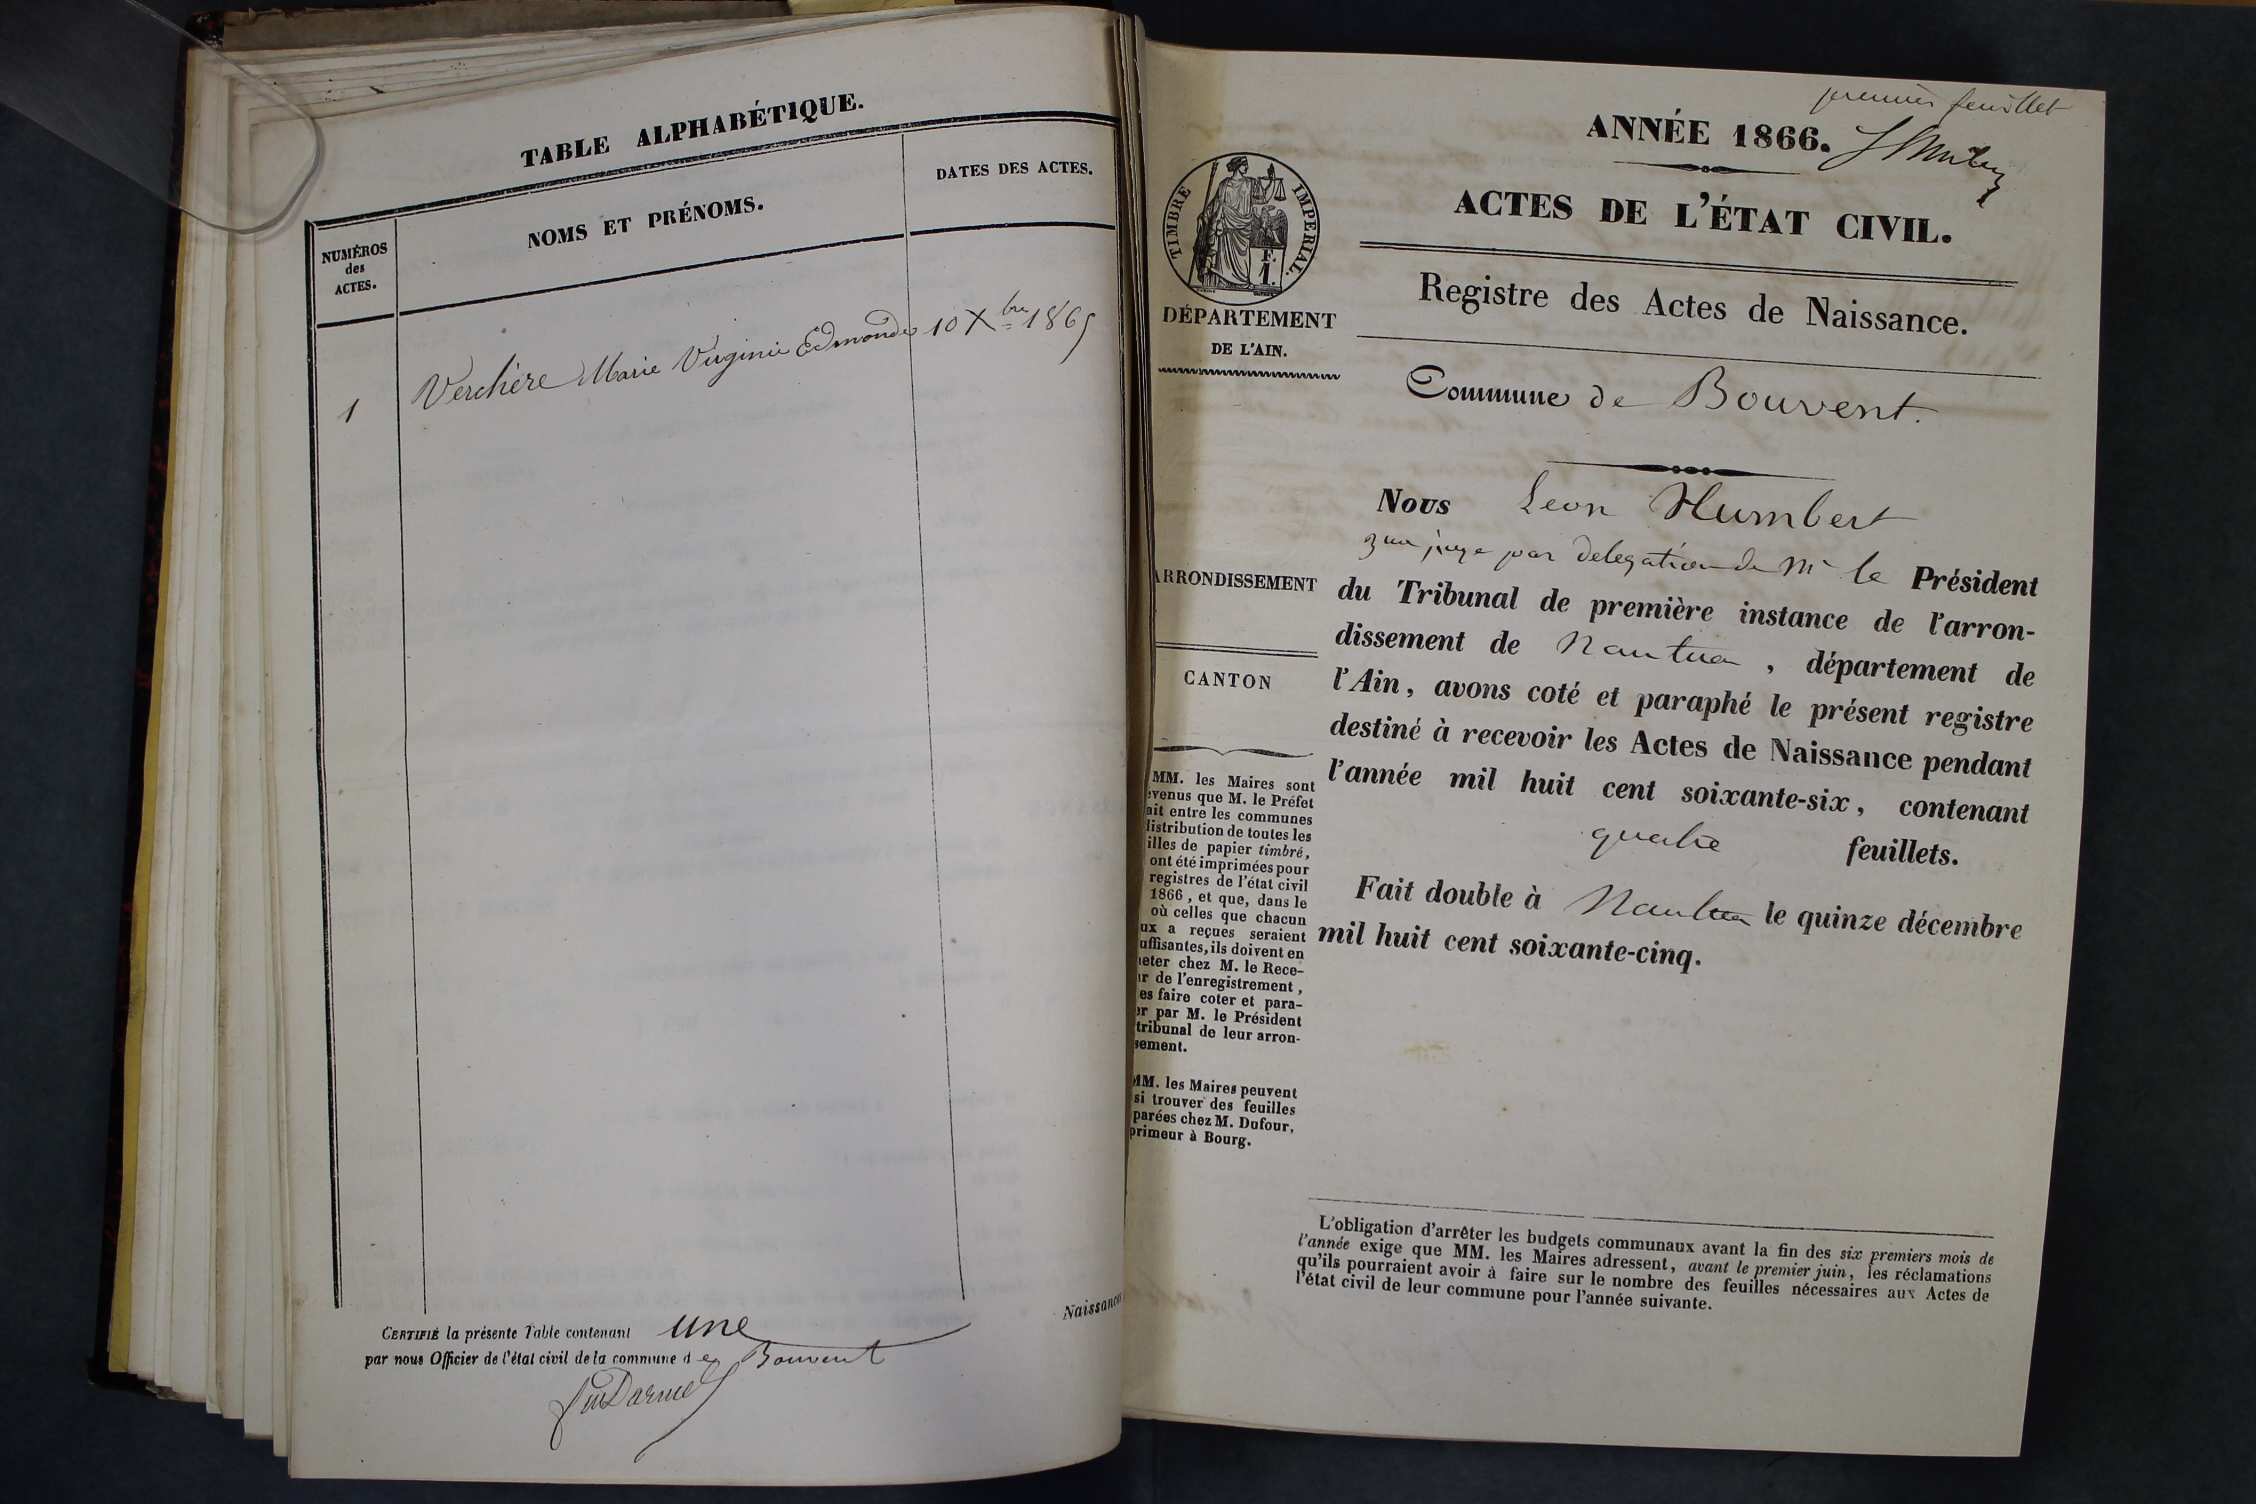 TABLE ALPHABÉTIQUE.
NUMÉROS
des
ACTES.
NOMS ET PRÉNOMS.
DATES DES ACTES.
1
Verchère Marie Virginie Edmonde 10 Xbre 1865
Naissances
CERTIFIÉ la présente Table contenant une
par nous Officier de l'état civil de la commune de Bouvent
premier feuillet
ANNÉE 1866.
ACTES DE L'ÉTAT CIVIL.
TIMBRE IMPERIAL.
F.
1.
DÉPARTEMENT
DE L'AIN.
Registre des Actes de Naissance.
Commune de Bouvent.
Nous Leon Humbert
juge par delegation de Mr le Président
du Tribunal de première instance de l'arron-
dissement de Nantua, département de
l'Ain, avons coté et paraphé le présent registre
destiné à recevoir les Actes de Naissance pendant
l'année mil huit cent soixante-six, contenant
quatre feuillets.
Fait double à Nantua le quinze décembre
mil huit cent soixante-cinq.
ARRONDISSEMENT
CANTON
MM. les Maires sont
evenus que M. le Préfet
ait entre les communes
distribution de toutes les
illes de papier timbré,
ont été imprimées pour
registres de l'état civil
1866, et que, dans le
où celles que chacun
ux a reçues seraient
uffisantes, ils doivent en
heter chez M. le Rece-
ur de l'enregistrement,
es faire coter et para-
er par M. le Président
tribunal de leur arron-
sement.
MM. les Maires peuvent
si trouver des feuilles
parées chez M. Dufour,
primeur à Bourg.
L'obligation d'arrêter les budgets communaux avant la fin des six premiers mois de
l'année exige que MM. les Maires adressent, avant le premier juin, les réclamations
qu'ils pourraient avoir à faire sur le nombre des feuilles nécessaires aux Actes de
l'état civil de leur commune pour l'année suivante.